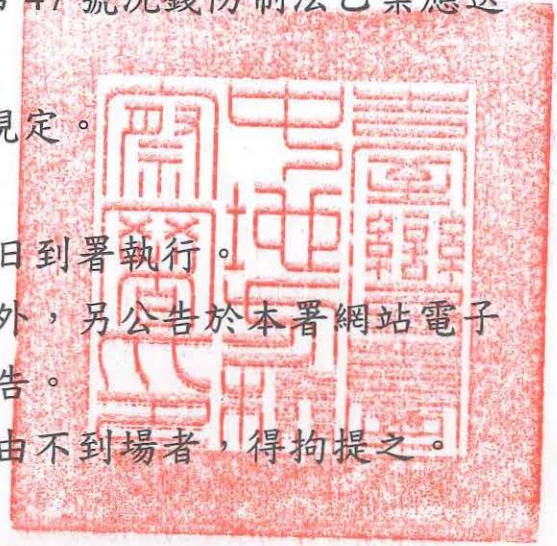 47號洗錢防制法乙案應送
規定。
日到署執行。
外,另公告於本署網站電子
告。
由不到場者,得拘提之。